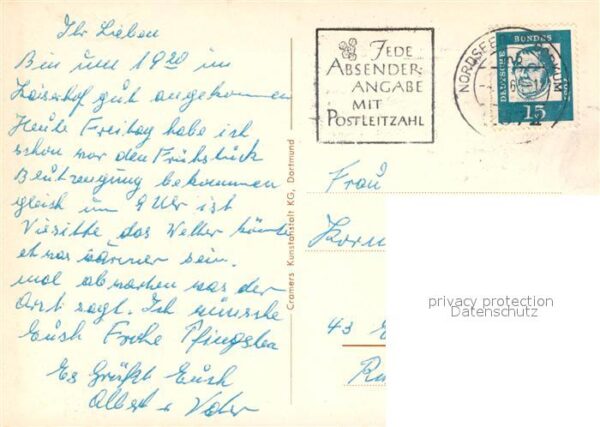 Ihr Lieben
Bin um 19 20 im
Kaiserhof gut angekommen
Heute Freitag habe ich
schon vor den Frühstück
Blutzeugung bekommen
gleich um 9 Uhr ist
Viesitte das Wetter könnte
etwas wärmer sein.
mal abwarten was der
Arzt sagt. Ich wünsche
Euch Frohe Pfingsten
Es Grüßt Euch
Albert + Vater
Cramers Kunstanstalt KG, Dortmund
JEDE
ABSENDER-
ANGABE
MIT
POSTLEITZAHL
NORDSEE
BORKUM
DEUTSCHE BUNDESPOST
15
Frau
43
privacy protection
Datenschutz